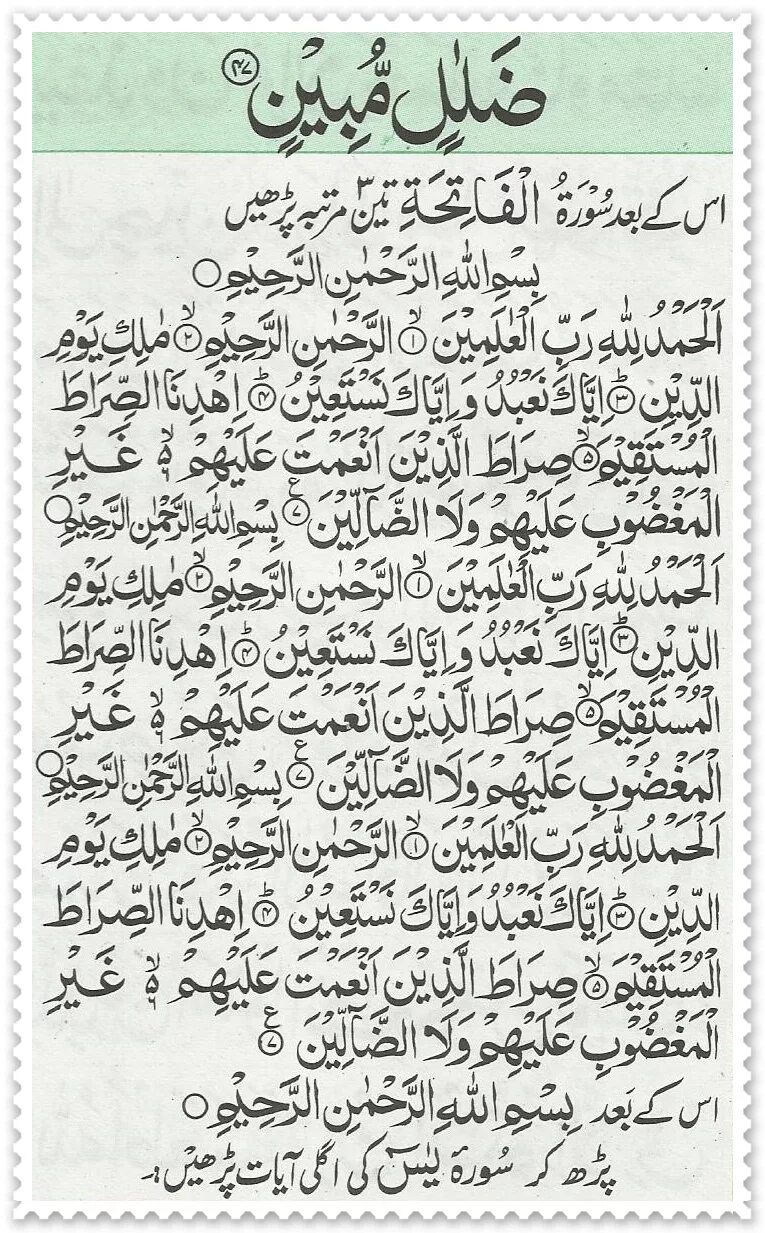 ضَلٰلٍ مُّبِیْنٍ ﴿۴۷﴾
اس کے بعد سُوْرَۃُ الْفَاتِحَۃِ تین ۳ مرتبہ پڑھیں
بِسْمِ اللہِ الرَّحْمٰنِ الرَّحِیْمِ ○
اَلْحَمْدُ لِلّٰهِ رَبِّ الْعٰلَمِیْنَ ۙ﴿۱﴾ الرَّحْمٰنِ الرَّحِیْمِ ۙ﴿۲﴾ مٰلِكِ یَوْمِ
الدِّیْنِ ؕ﴿۳﴾ اِیَّاكَ نَعْبُدُ وَ اِیَّاكَ نَسْتَعِیْنُ ؕ﴿۴﴾ اِهْدِنَا الصِّرَاطَ
الْمُسْتَقِیْمَ ۙ﴿۵﴾ صِرَاطَ الَّذِیْنَ اَنْعَمْتَ عَلَیْهِمْ ۙ۬۶ غَیْرِ
الْمَغْضُوْبِ عَلَیْهِمْ وَلَا الضَّآلِّیْنَ ﴿۷﴾ ع بِسْمِ اللہِ الرَّحْمٰنِ الرَّحِیْمِ ○
اَلْحَمْدُ لِلّٰهِ رَبِّ الْعٰلَمِیْنَ ۙ﴿۱﴾ الرَّحْمٰنِ الرَّحِیْمِ ۙ﴿۲﴾ مٰلِكِ یَوْمِ
الدِّیْنِ ؕ﴿۳﴾ اِیَّاكَ نَعْبُدُ وَ اِیَّاكَ نَسْتَعِیْنُ ؕ﴿۴﴾ اِهْدِنَا الصِّرَاطَ
الْمُسْتَقِیْمَ ۙ﴿۵﴾ صِرَاطَ الَّذِیْنَ اَنْعَمْتَ عَلَیْهِمْ ۙ۬۶ غَیْرِ
الْمَغْضُوْبِ عَلَیْهِمْ وَلَا الضَّآلِّیْنَ ﴿۷﴾ ع بِسْمِ اللہِ الرَّحْمٰنِ الرَّحِیْمِ ○
اَلْحَمْدُ لِلّٰهِ رَبِّ الْعٰلَمِیْنَ ۙ﴿۱﴾ الرَّحْمٰنِ الرَّحِیْمِ ۙ﴿۲﴾ مٰلِكِ یَوْمِ
الدِّیْنِ ؕ﴿۳﴾ اِیَّاكَ نَعْبُدُ وَ اِیَّاكَ نَسْتَعِیْنُ ؕ﴿۴﴾ اِهْدِنَا الصِّرَاطَ
الْمُسْتَقِیْمَ ۙ﴿۵﴾ صِرَاطَ الَّذِیْنَ اَنْعَمْتَ عَلَیْهِمْ ۙ۬۶ غَیْرِ
الْمَغْضُوْبِ عَلَیْهِمْ وَلَا الضَّآلِّیْنَ ﴿۷﴾ ع
اس کے بَعد بِسْمِ اللہِ الرَّحْمٰنِ الرَّحِیْمِ ○
پڑھ کر سُورۂ یٰسٓ کی اگلی آیات پڑھیں۔